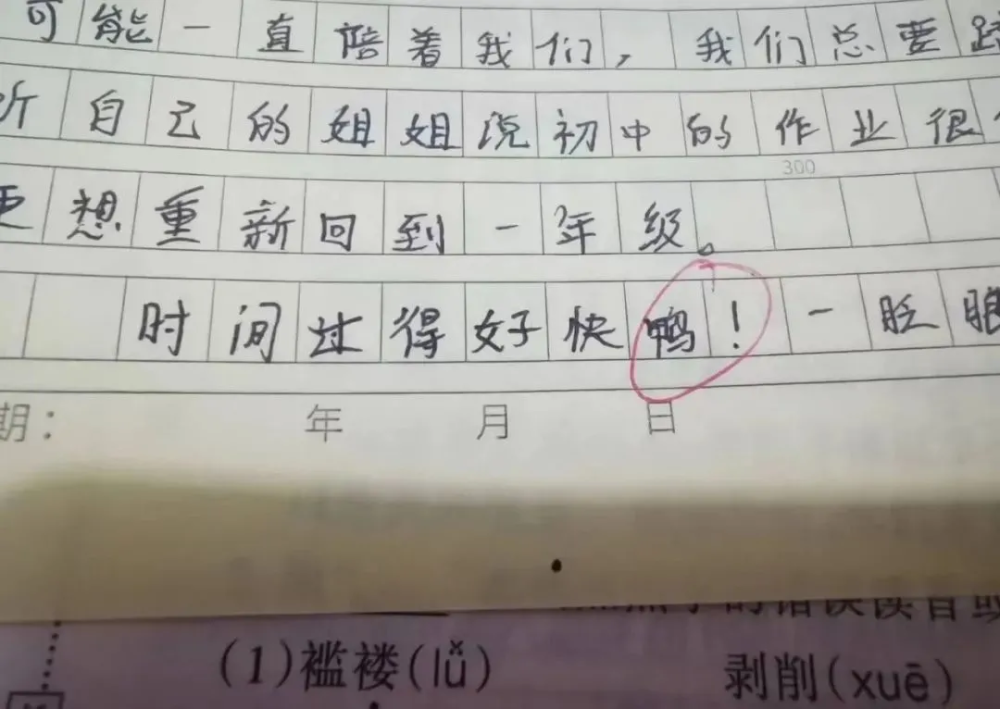 可能一直陪着我们，我们总要
听自己的姐姐说初中的作业很
更想重新回到一年级。
300
时间过得好快鸭！一眨眼
期： 年 月 日
(1)褴褛(lǚ) 剥削(xuē)